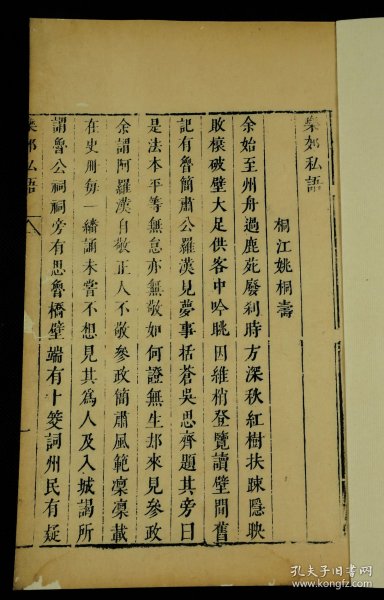 樂郊私語
桐江姚桐壽
余始至州舟過鹿苑廢刹時方深秋紅樹扶疎隱映
敗榱破壁大足供客中吟眺因維梢登覽讀壁間舊
記有魯簡肅公羅漢見夢事括蒼吳思齊題其旁曰
是法本平等無怠亦無敬如何證無生却來見參政
余謂阿羅漢自敬正人不敬參政簡肅風範凜凜載
在史冊每一繙誦未嘗不想見其為人及入城謁所
謂魯公祠祠旁有思魯橋壁端有十筊詞州民有疑
樂郊私語
一
孔夫子旧书网
www.kongfz.com